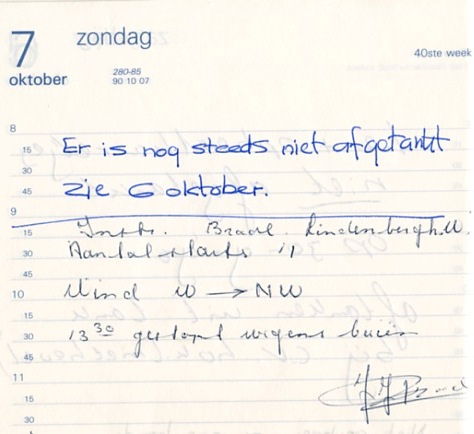 7 zondag
40ste week
oktober
280-85
90 10 07
8
15 Er is nog steeds niet afgetankt
30
45 zie 6 oktober.
9
15 Instr. Lindenbergh.
30 Aantal starts 11
45
10 Wind W → NW
15
30 13 30 gestopt wegens buien
45
11
15
30